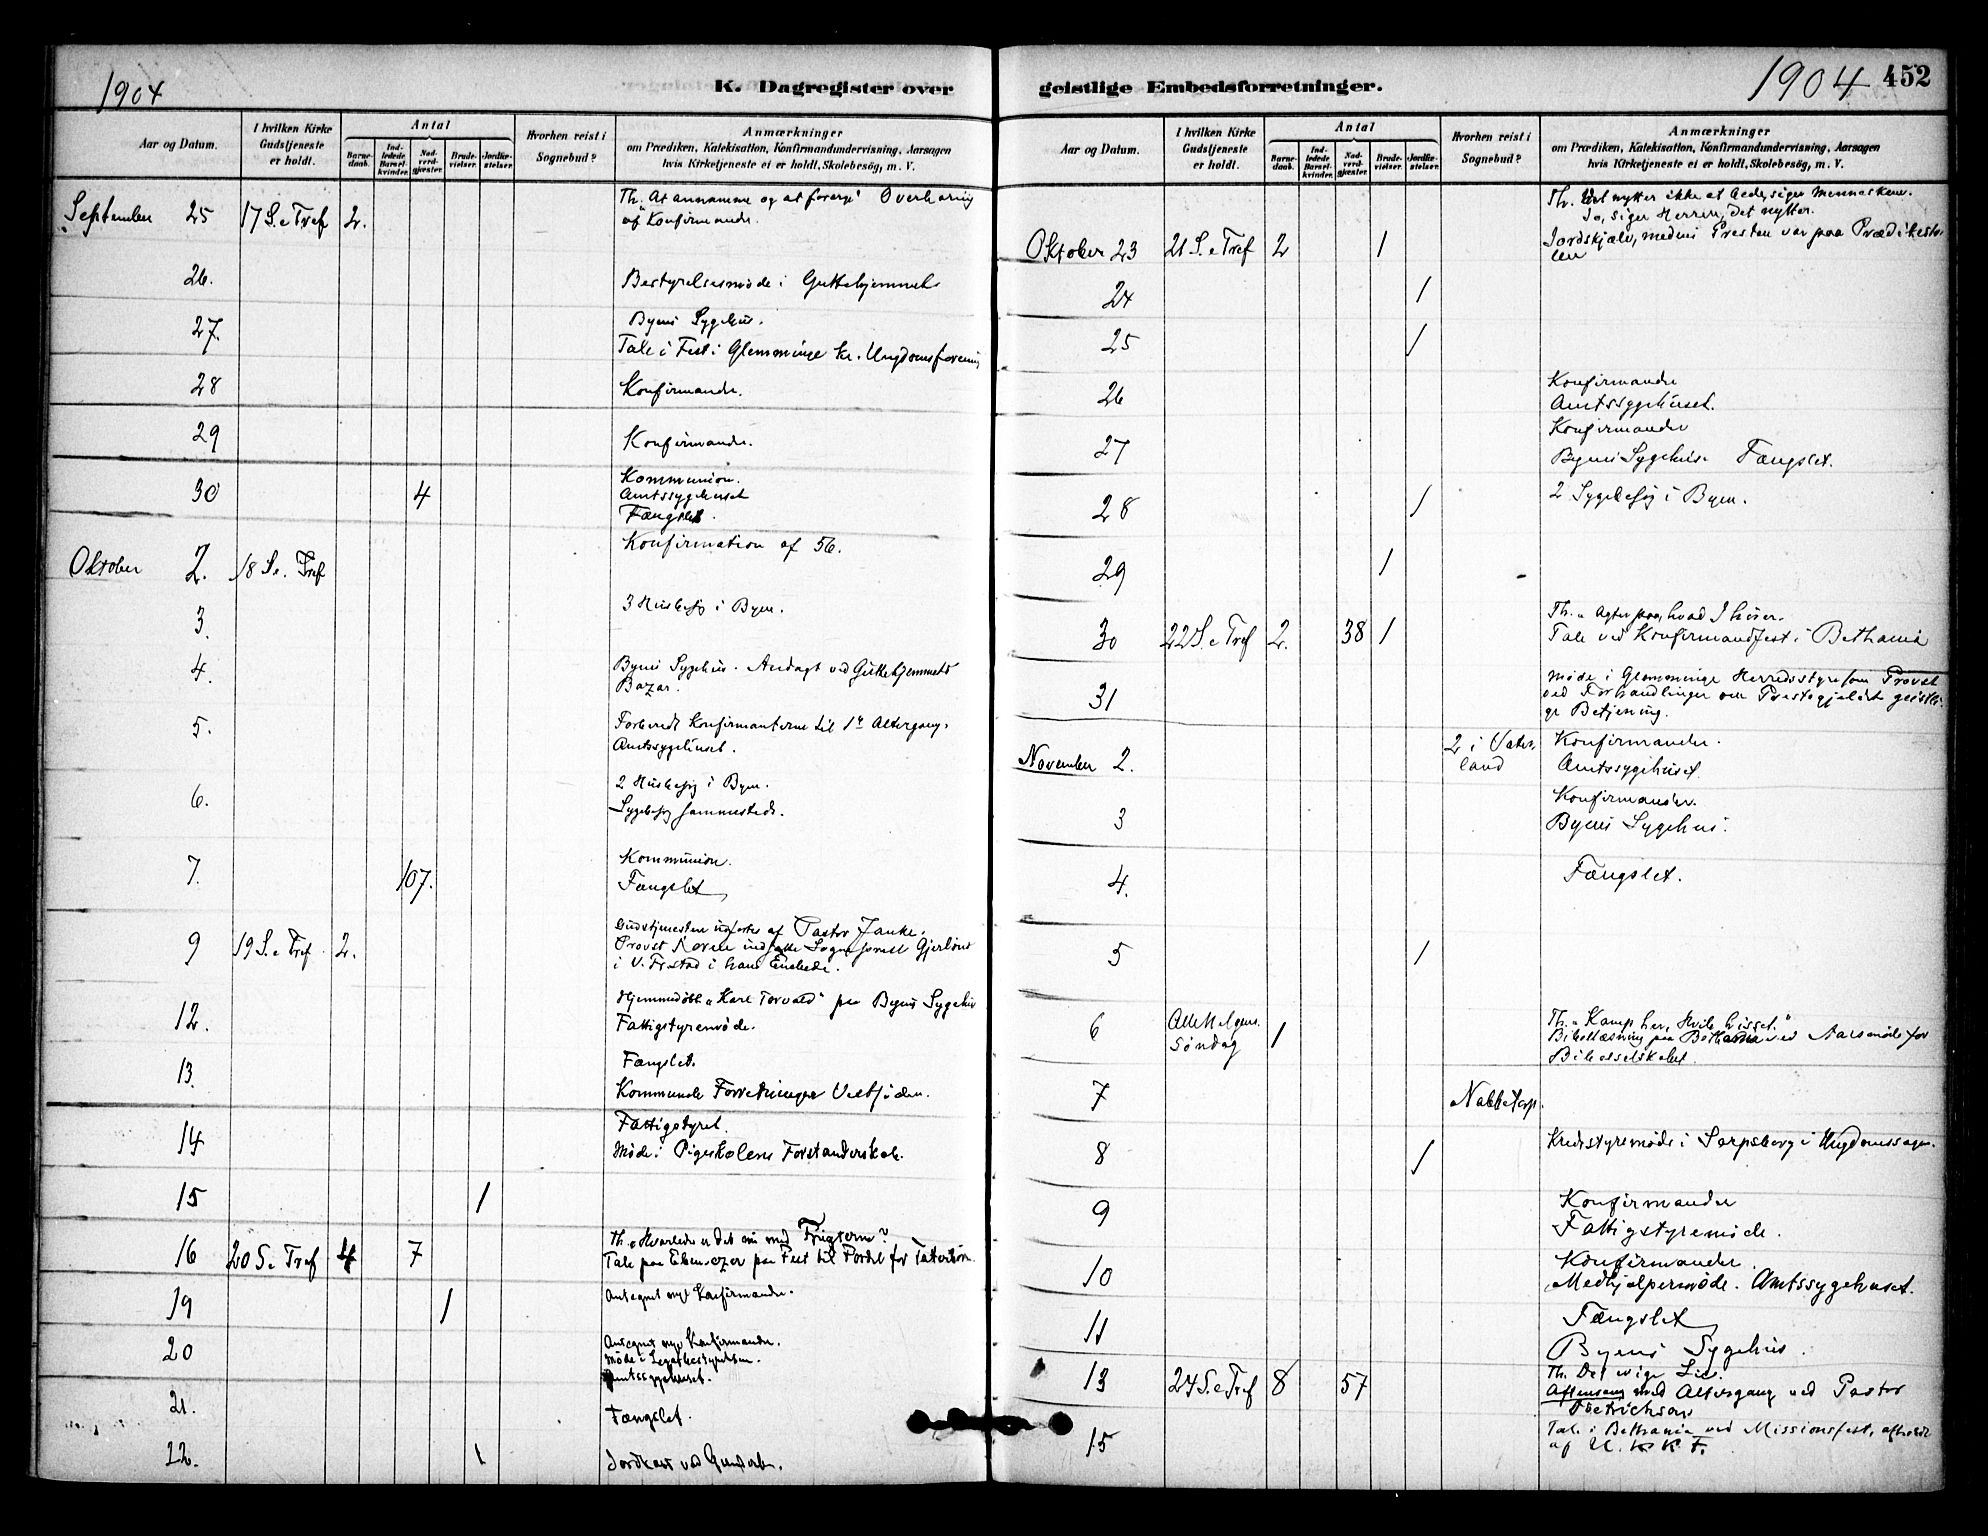 1904
K. Dagregister over
Aar og Datum.
I hvilken Kirke Gudstjeneste er holdt.
Antal
Barnedaab.
Indledede Barselkvinder.
Nadverdgjæster.
Brudevielser.
Jordfæstelser.
Hvorhen reist i Sognebud?
Anmærkninger
om Prædiken, Katekisation, Konfirmandundervisning, Aarsagen
hvis Kirketjeneste ei er holdt, Skolebesøg, m. V.
September 25 17 S. e Tref 2. Th. At annamme og at forøge. Overhøring
af Konfirmander.
26. Bestyrelsesmøde i Guttehjemmet.
27. Byens Sygehus.
Tale i Fest i Glemminge kr. Ungdomsforening
28 Konfirmander.
29 Konfirmander.
30 4 Kommunion.
Amtssygehuset
Fængslet.
Oktober 2. 18 S. e. Tref Konfirmation af 56.
3. 3 Husbesøg i Byen.
4. Byens Sygehus. Andagt ved Guttehjemmets
Bazar.
5. Forberedt Konfirmanterne til 1ste Altergang.
Amtssygehuset.
6. 2 Husbesøg i Byen.
Sygebesøg sammesteds.
7. 107. Kommunion.
Fængslet
9 19 S. e Tref 2. Gudstjenesten udførtes af Pastor Janke.
Provst indsatte Sogneprest Gjerløw
i V. Fr.stad i hans Embede.
12. Hjemmedøbt "Karl Torvald" paa Byens Sygehus
Fattigstyremøde.
13. Fængslet.
Kommunale Forretninger Vestsiden.
14 Fattigstyret.
Møde i Pigeskolens Forstanderskab.
15 1
16 20 S. e Tref 4 7 Th. Hvorledes er det med Frugterne?
Tale paa Ebenezer paa Fest til Fordel for Taterbørn.
19 1 Antegnet nye Konfirmander.
20 Antegnet nye Konfirmander.
Møde i Legatbestyrelsen.
Amtssygehuset.
21. Fængslet.
22. 1 Jordkast ved Graven.
geistlige Embedsforretninger.
1904 452
Aar og Datum.
I hvilken Kirke Gudstjeneste er holdt.
Antal
Barnedaab.
Indledede Barselkvinder.
Nadverdgjæster.
Brudevielser.
Jordfæstelser.
Hvorhen reist i Sognebud?
Anmærkninger
om Prædiken, Katekisation, Konfirmandundervisning, Aarsagen
hvis Kirketjeneste ei er holdt, Skolebesøg, m. V.
Th. Det nytter ikke at bede, siger Menneskene.
Jo, siger Herren, det nytter.
Oktober 23 21 S. e Tref 2 1 Jordskjælv, medens Presten var paa Prædikesto-
len
24 1
25 1
26 Konfirmander
Amtssygehuset.
27 Konfirmander
Byens Sygehus. Fængslet.
28 1 2 Sygebesøg i Byen.
29 1
30 22 S. e Tref 2. 38 1 Th. "Agter paa, hvad I hører.
Tale ved Konfirmandfest i Bethania
31 Møde i Glemminge Herredsstyre som Provst
ved Forhandlinger om Prestegjeldets geistli-
ge Betjening.
November 2. 2 i Vater-
land Konfirmander.
Amtssygehuset.
3 Konfirmander.
Byens Sygehus.
4. Fængslet.
5 1
6 Allehelgens-
Søndag 1 Th. "Kamp her, Hvile hisset."
Bibellæsning paa Bethania ved Aarsmøde for
Bibelselskabet.
7 Nabbetorp.
8 1 Kredsstyremøde i Sarpsborg i Ungdomssagen.
9 Konfirmander
Fattigstyremøde.
10 Konfirmander.
Medhjælpermøde. Amtssygehuset.
11 Fængslet
Byens Sygehus.
13 24 S. e Tref 8 57 Th. Det evige Liv.
Aftensang med Altergang ved Pastor
Dietrichson
15 Tale i Bethania ved Missionsfest, afholdt
af U. K. F.